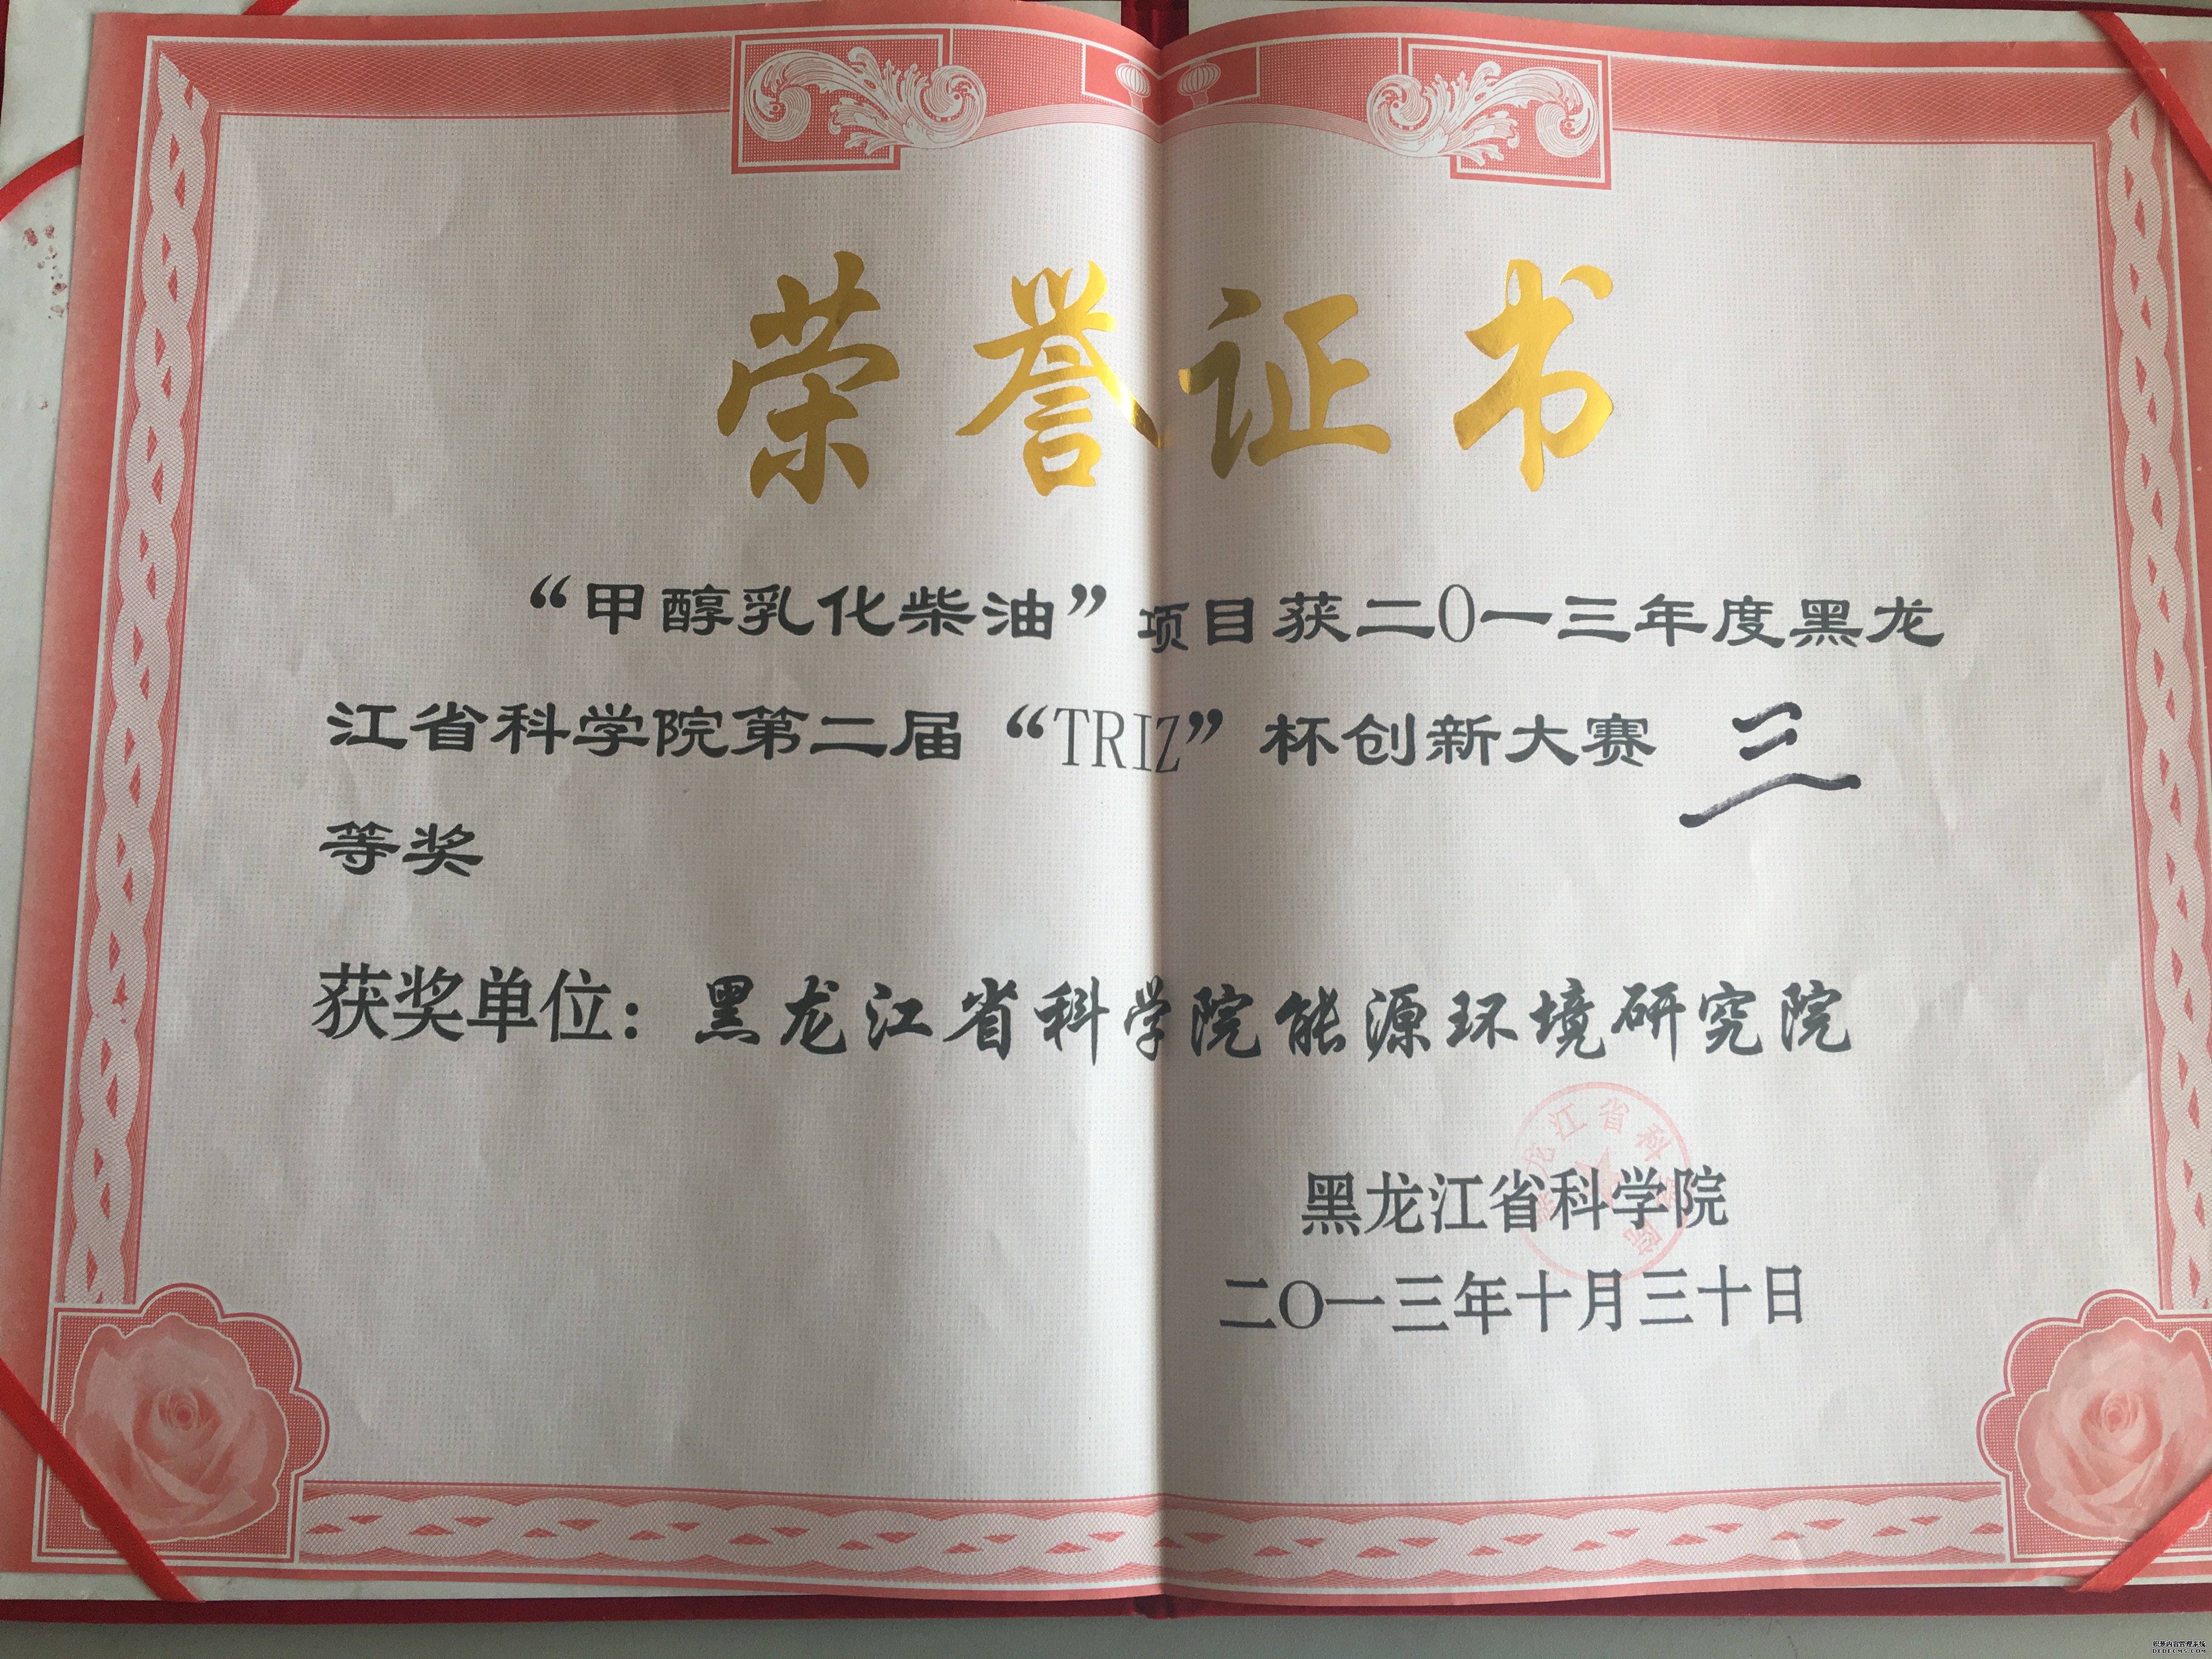 荣誉证书
“甲醇乳化柴油”项目获二〇一三年度黑龙
江省科学院第二届“TRIZ”杯创新大赛 三
等奖
获奖单位：黑龙江省科学院能源环境研究院
龙江省科
黑龙江省科学院
二〇一三年十月三十日
织梦内容管理系统
DEDECMS.COM